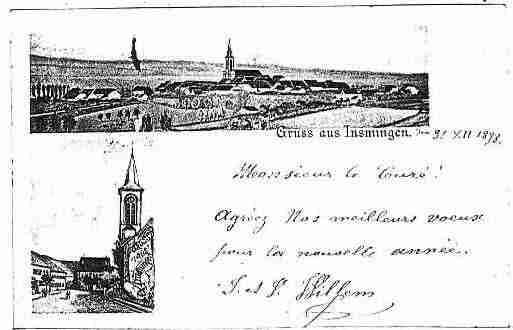 Gruss aus Insmingen. den 31 XII 1898.
Monsieur le Curé!
Agréez Nos meilleurs voeux
pour la nouvelle année.